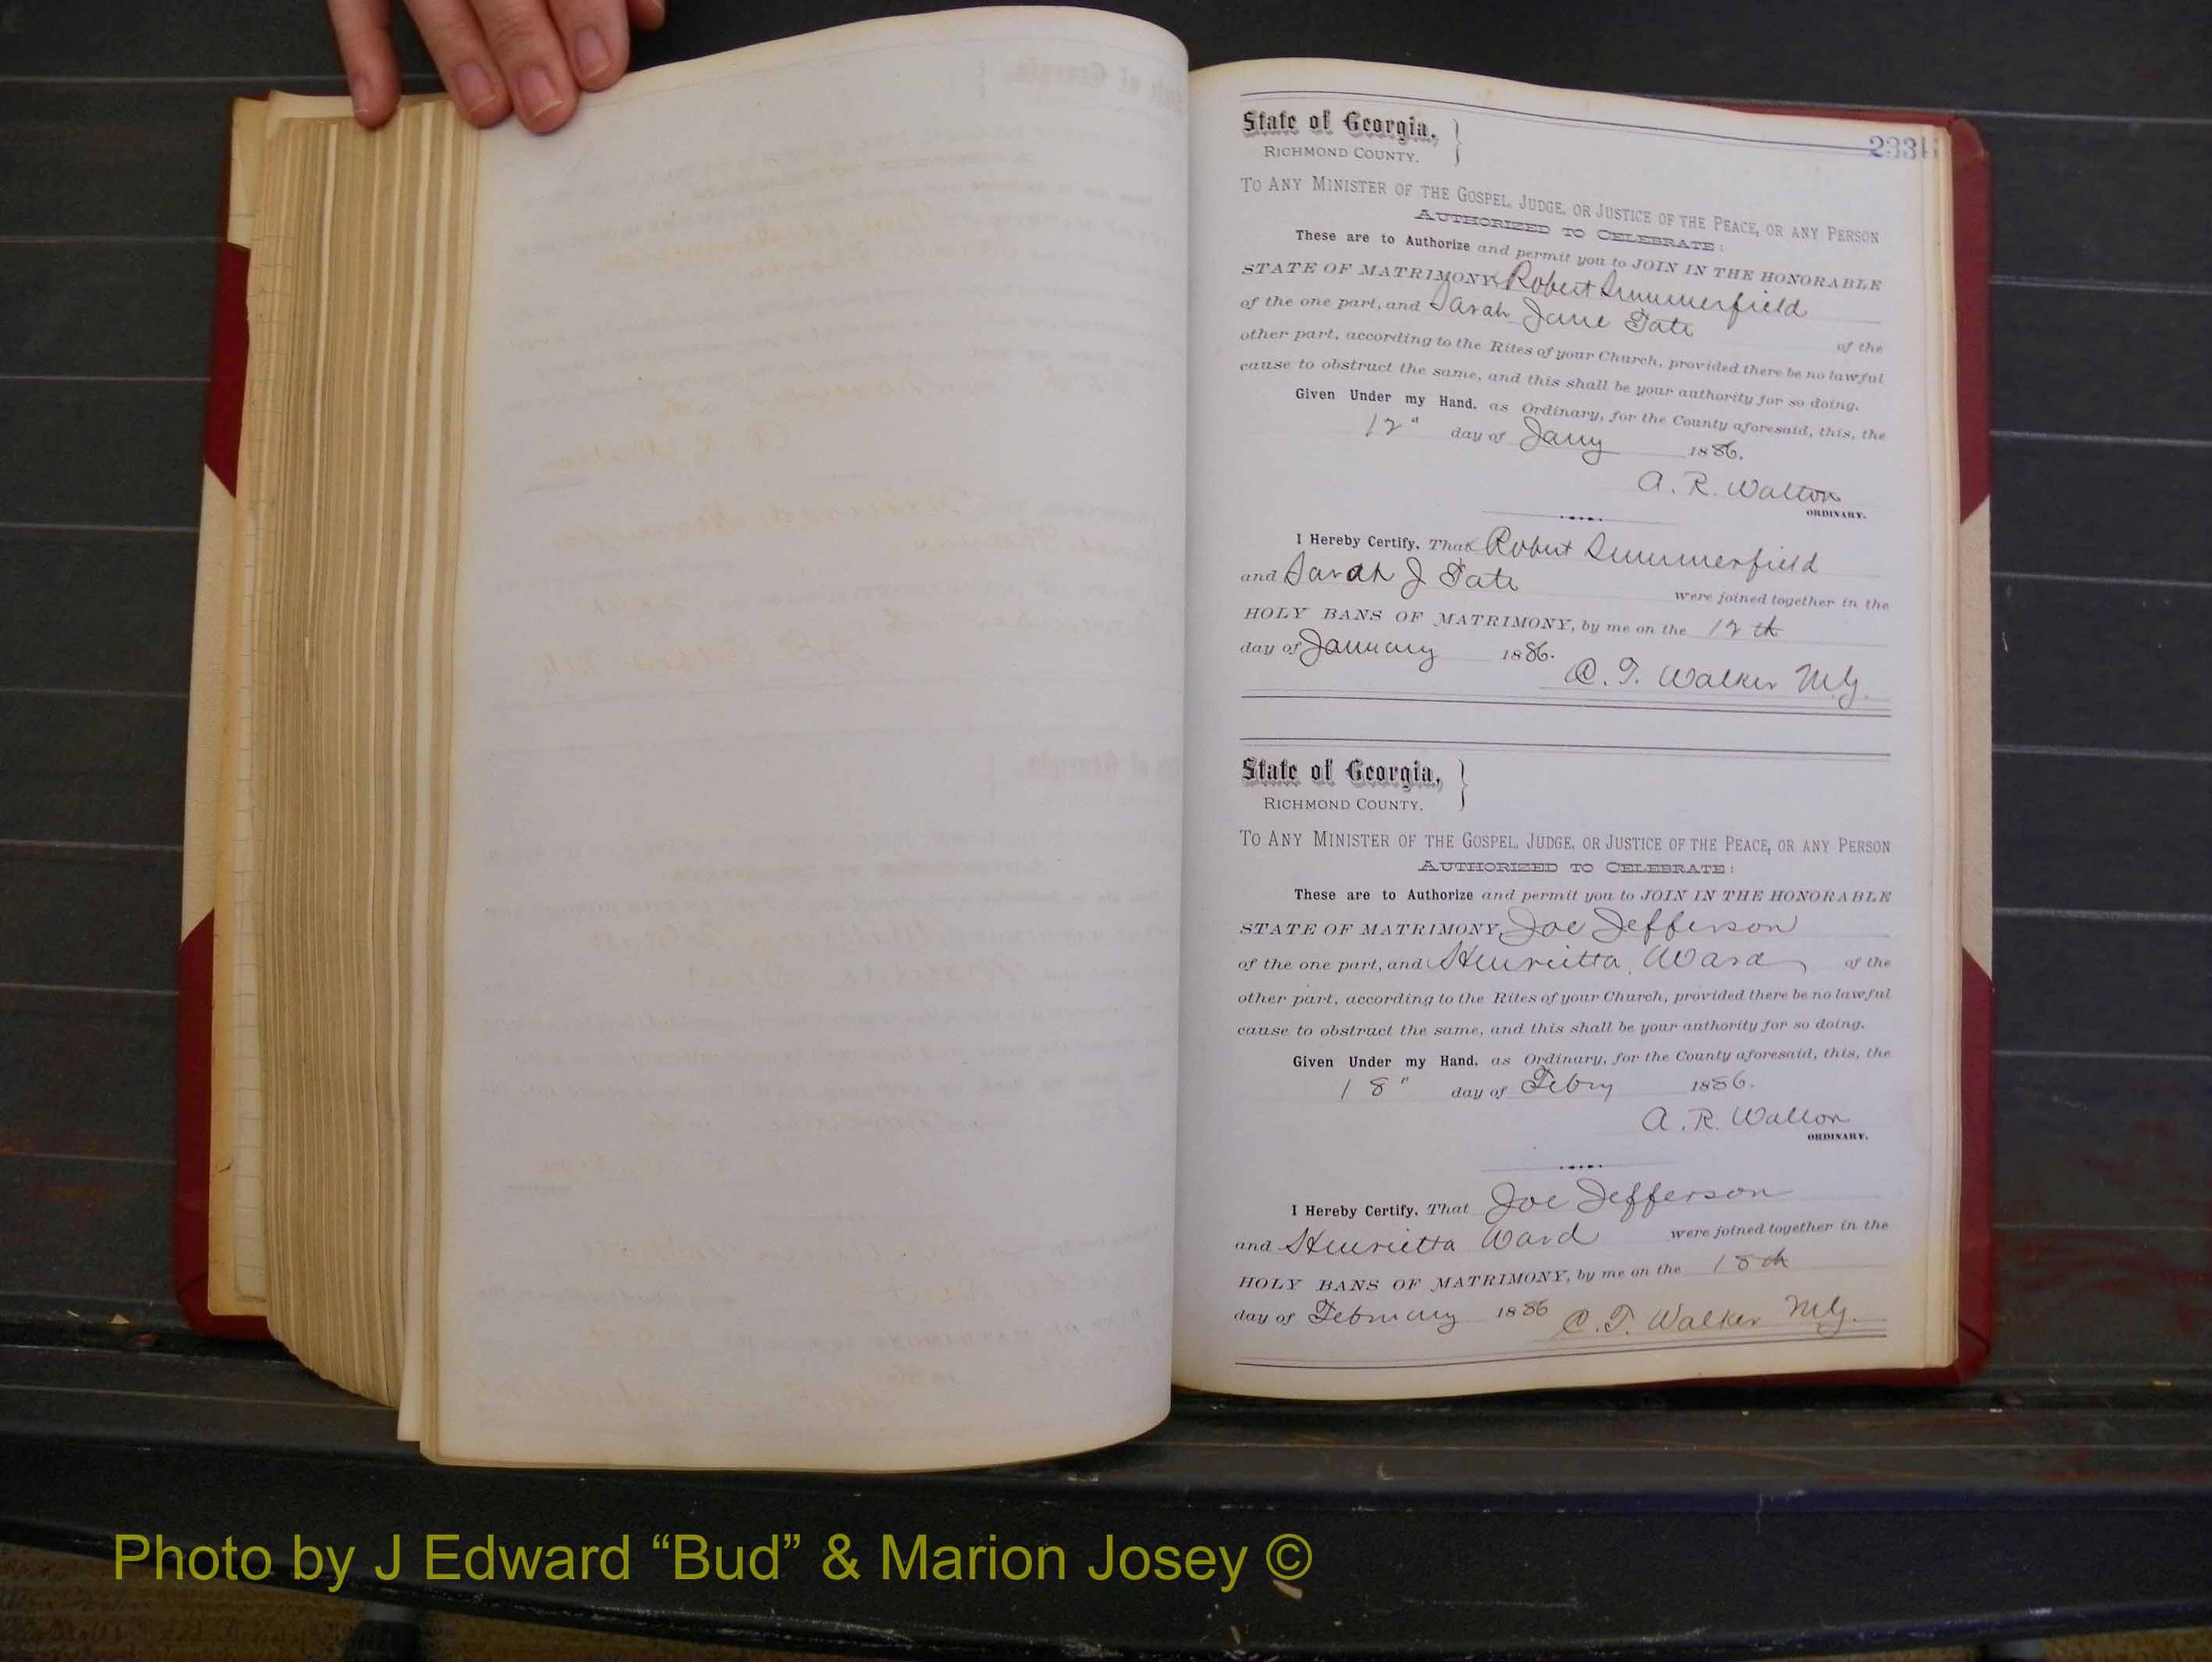 233
State of Georgia,
RICHMOND COUNTY.
TO ANY MINISTER OF THE GOSPEL, JUDGE, OR JUSTICE OF THE PEACE, OR ANY PERSON
AUTHORIZED TO CELEBRATE:
These are to Authorize and permit you to JOIN IN THE HONORABLE
STATE OF MATRIMONY, Robert Summerfield
of the one part, and Sarah Jane Tate of the
other part, according to the Rites of your Church, provided there be no lawful
cause to obstruct the same, and this shall be your authority for so doing.
Given Under my Hand, as Ordinary, for the County aforesaid, this, the
12" day of Jany 1886.
A. R. Walton
ORDINARY.
I Hereby Certify, That Robert Summerfield
and Sarah J Tate were joined together in the
HOLY BANS OF MATRIMONY, by me on the 12th
day of January 1886.
C. T. Walker M.G.
State of Georgia,
RICHMOND COUNTY.
TO ANY MINISTER OF THE GOSPEL, JUDGE, OR JUSTICE OF THE PEACE, OR ANY PERSON
AUTHORIZED TO CELEBRATE:
These are to Authorize and permit you to JOIN IN THE HONORABLE
STATE OF MATRIMONY, Joe Jefferson
of the one part, and Henrietta Ward of the
other part, according to the Rites of your Church, provided there be no lawful
cause to obstruct the same, and this shall be your authority for so doing.
Given Under my Hand, as Ordinary, for the County aforesaid, this, the
18" day of Febry 1886.
A. R. Walton
ORDINARY.
I Hereby Certify, That Joe Jefferson
and Henrietta Ward were joined together in the
HOLY BANS OF MATRIMONY, by me on the 18th
day of February 1886 C. T. Walker M.G.
Photo by J Edward “Bud” & Marion Josey ©